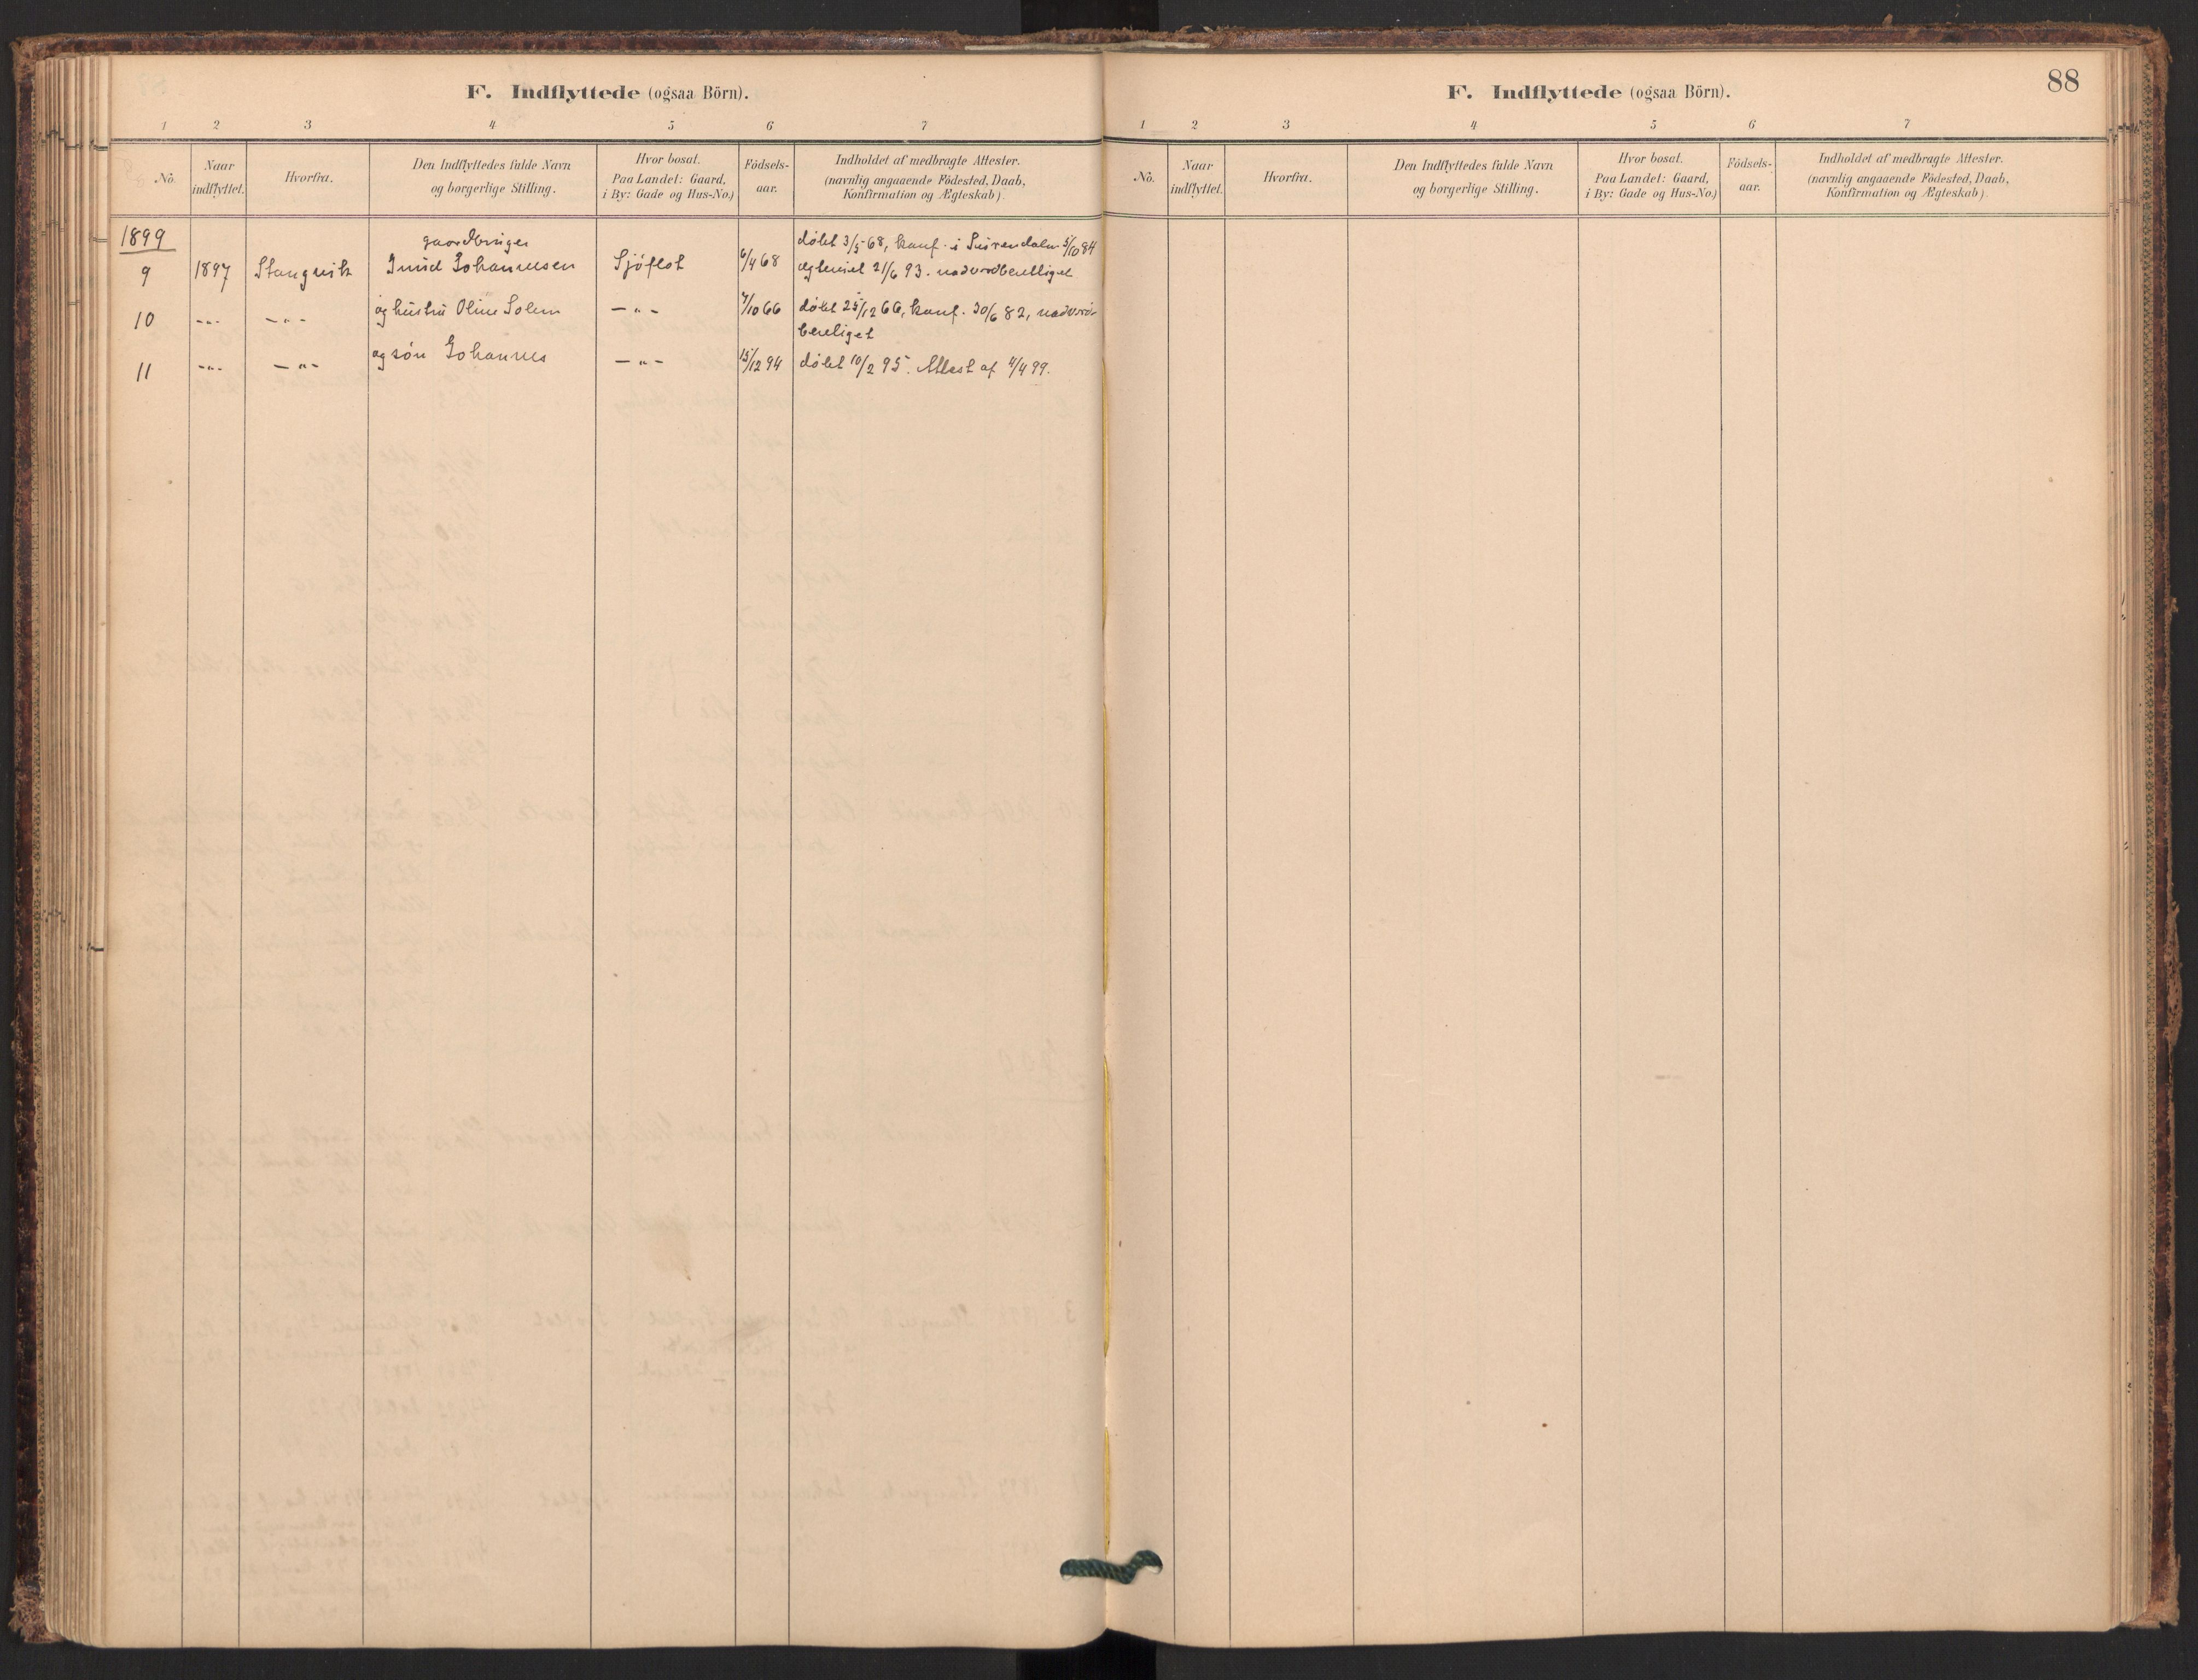 F. Indflyttede (ogsaa Börn).
1 2 3 4 5 6 7
No.
Naar indflyttet.
Hvorfra.
Den Indflyttedes fulde Navn
og borgerlige Stilling.
Hvor bosat.
Paa Landet: Gaard,
i By: Gade og Hus-No.)
Födsels-
aar.
Indholdet af medbragte Attester.
(navnlig angaaende Födested, Daab,
Konfirmation og Ægteskab).
1899
gaardbruger
döbt 3/5 68, konf. i Surendalen 5/10 84
9 1897 Stangvik Gunnd Johannesen Sjöflot 6/4 68 ægteviet 21/6 93. nadverdberettiget
10 -"- -"- og hustru Oline Solem -"- 7/10 66 döbt 25/12 66, konf. 30/6 82, nadverd-
beretiget
11 -"- -"- og sön Johannes -"- 15/12 94 döbt 10/2 95. Attest af 4/4 99.
88
F. Indflyttede (ogsaa Börn).
1 2 3 4 5 6 7
No.
Naar
indflyttet.
Hvorfra.
Den Indflyttedes fulde Navn
og borgerlige Stilling.
Hvor bosat.
Paa Landet: Gaard,
i By: Gade og Hus-No.)
Födsels-
aar.
Indholdet af medbragte Attester.
(navnlig angaaende Födested, Daab,
Konfirmation og Ægteskab).